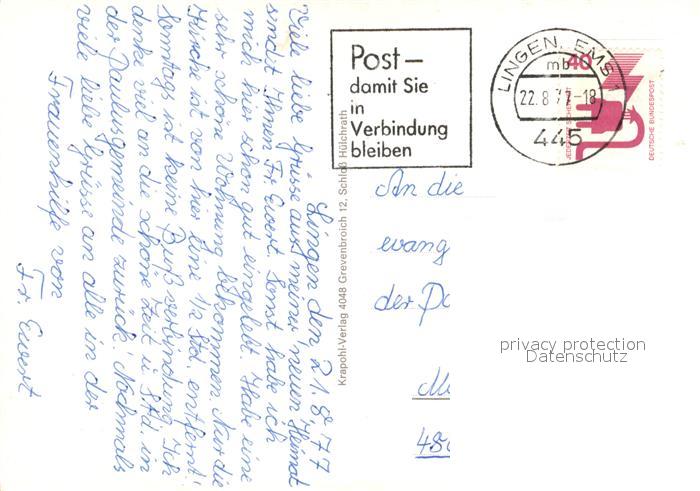 Lingen den 21.8.77
Viele liebe Grüsse aus meiner neuen Heimat
sendet Ihnen Fr. Ewert. Sonst habe ich
mich hier schon gut eingelebt. Habe eine
sehr schöne Wohnung bekommen. Nur die
Kirche ist von hier eine 1/2 Std. entfernt.
Sonntag ist keine Bußverbindung. Ich
denke viel an die schöne Zeit u. Std. in
der Paulusgemeinde zurück. Nochmals
viele liebe Grüsse an alle in der
Frauenhilfe von
Fr. Ewert
Krapohl-Verlag 4048 Grevenbroich 12, Schloß Hülchrath
Post –
damit Sie
in
Verbindung
bleiben
LINGEN, EMS 1
mb
22.8.77-18
445
40
JEDERZEIT SICHERHEIT
DEUTSCHE BUNDESPOST
An die
evang
der Pa
privacy protection
Datenschutz